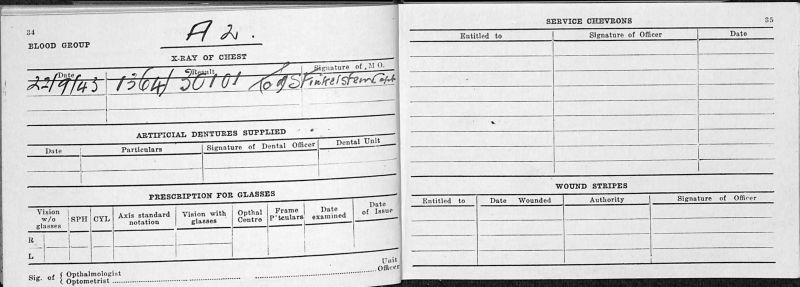 34
A 2.
BLOOD GROUP
X-RAY OF CHEST
Date Result Signature of M O.
22/9/43 1364/30101 Finkelstein Capt
ARTIFICIAL DENTURES SUPPLIED
Date Particulars Signature of Dental Officer Dental Unit
PRESCRIPTION FOR GLASSES
Vision w/o glasses SPH CYL Axis standard notation Vision with glasses Opthal Centre Frame P'ticulars Date examined Date of Issue
R
L
Sig. of { Opthalmologist
{ Optometrist
Unit
Officer
SERVICE CHEVRONS 35
Entitled to Signature of Officer Date
WOUND STRIPES
Entitled to Date Wounded Authority Signature of Officer